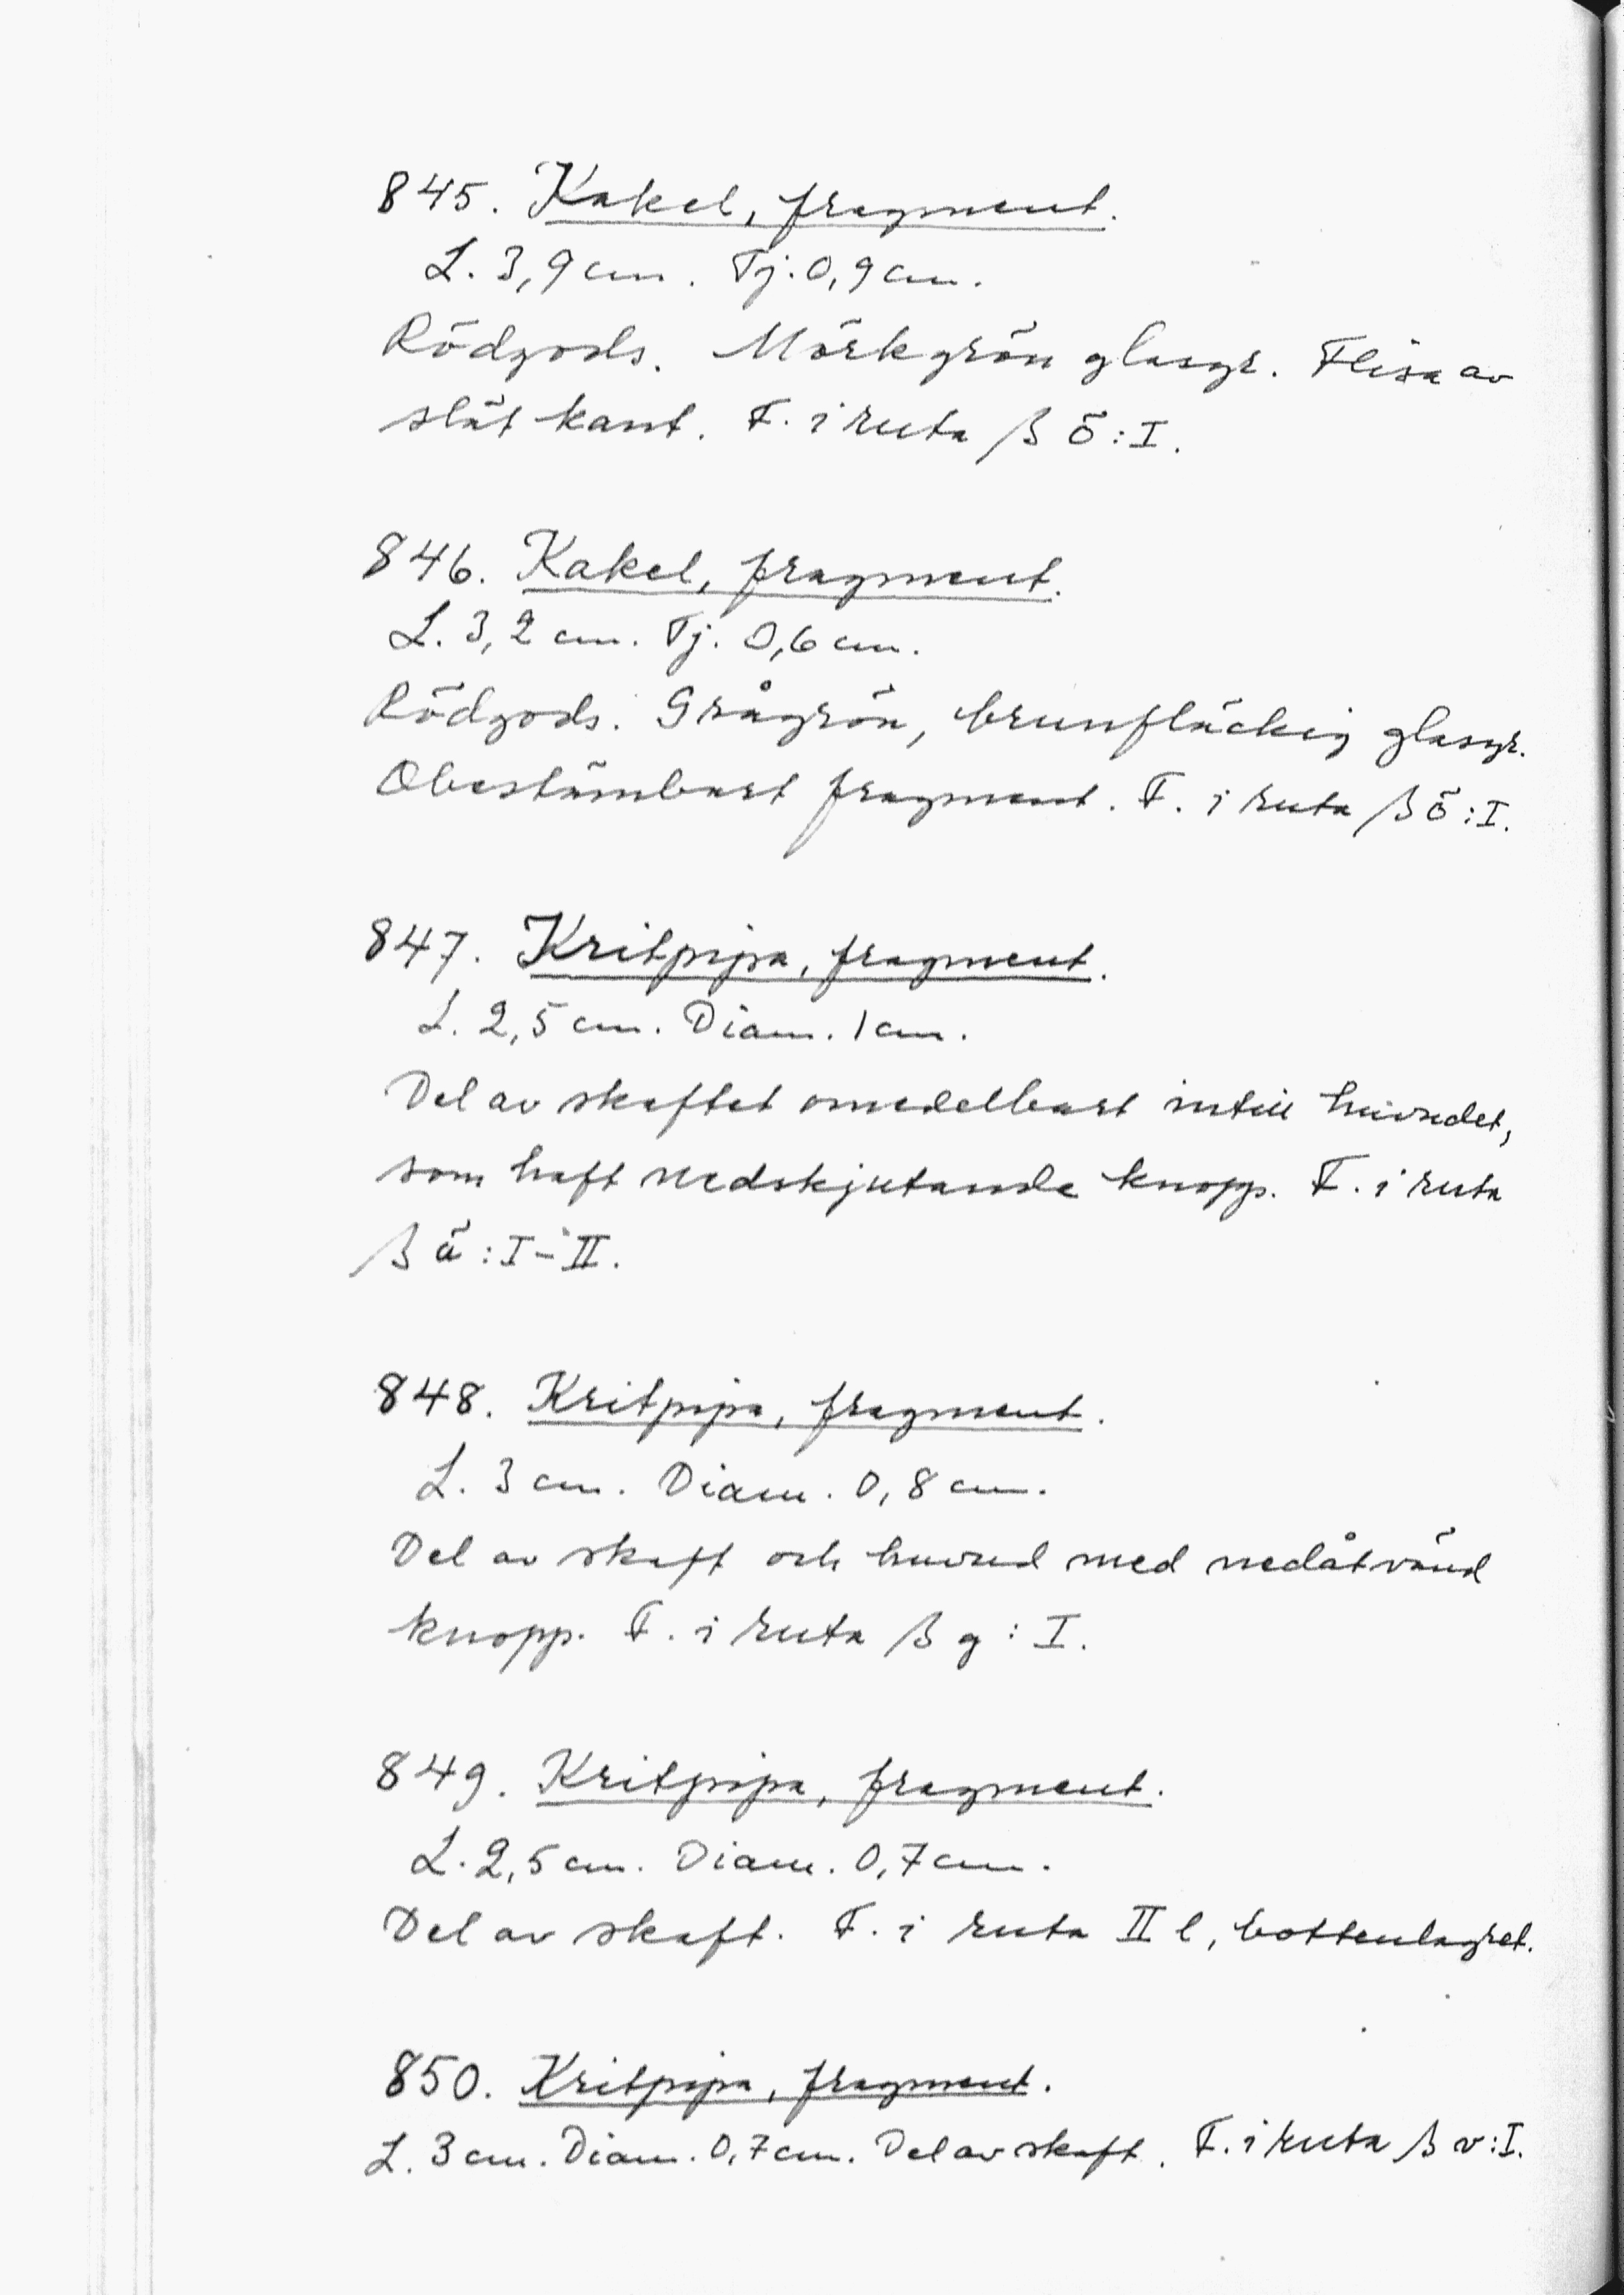 845. Kakel, fragment.
L. 3,9 cm. Tj. 0,9 cm.
Rödgods. Mörkgrön glasyr. Flisa av
slät kant. F. i ruta β ö : I.
846. Kakel, fragment.
L. 3,2 cm. Tj. 0,6 cm.
Rödgods. Grågrön, brunfläckig glasyr.
Obestämbart fragment. F. i ruta β ö : I.
847. Kritpipa, fragment.
L. 2,5 cm. Diam. 1 cm.
Del av skaftet omedelbart intill huvudet,
som haft nedskjutande knopp. F. i ruta
β ä : I – II.
848. Kritpipa, fragment.
L. 3 cm. Diam. 0,8 cm.
Del av skaft och huvud med nedåtvänd
knopp. F. i ruta β g : I.
849. Kritpipa, fragment.
L. 2,5 cm. Diam. 0,7 cm.
Del av skaft. F. i ruta II l, bottenlagret.
850. Kritpipa, fragment.
L. 3 cm. Diam. 0,7 cm. Del av skaft. F. i ruta β v : I.